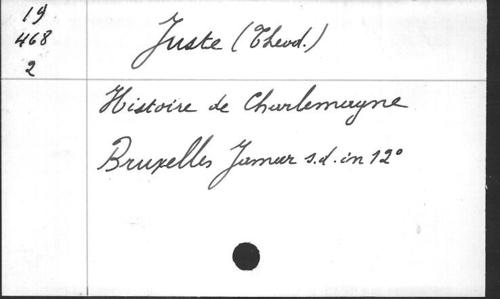 19
468
2
Juste (Theod.)
Histoire de Charlemagne
Bruxelles Jamar s.d. in 12°